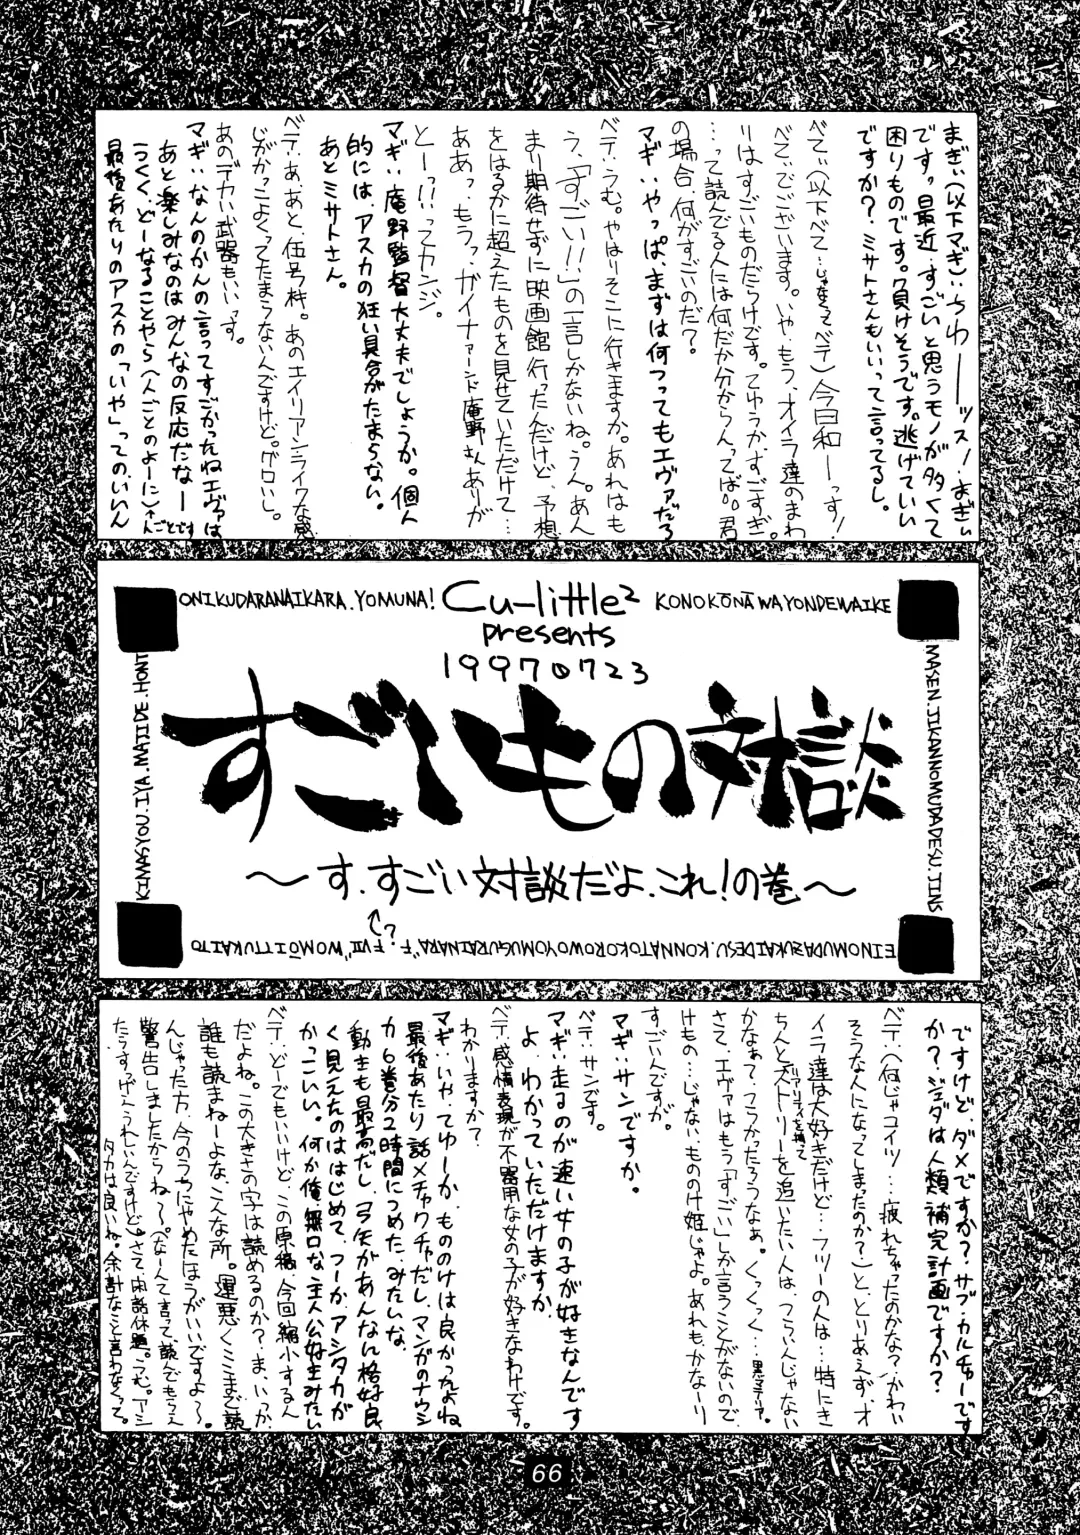 まぎぃ(以下マギ)：ちわーーッス！まぎぃ
です。最近、すごいと思うモノが多くて
困りものです。負けそうです。逃げていい
ですか？ミサトさんもいいって言ってるし。
べてぃ(以下べて…じゃなくてベテ)今日和ーーっす！
べてぃでございます。いや、もう、オイラ達のまわ
りはすごいものだらけです。てゆうか、すごすぎ。
…って読んでる人には何だか分からんってば。君
の場合、何がすごいのだ？
マギ：いやっぱ、まずは何つってもエヴァだろ
ベテ：うむ。やはりそこに行きますか。あれはも
う、「すごい！！」の一言しかないね。うん。あん
まり期待せずに映画館行ったんだけど、予想
をはるかに超えたものを見せていただけて…
ああっ、もうっ、ガイナァーンド庵野さんありが
とーっ!?ってカンジ。
マギ：庵野監督大丈夫でしょうか。個人
的には、アスカの狂い具合がたまらない。
あとミサトさん。
ベテ：ああ、あと、伍号機。あのエイリアンライクな感
じがかっこよくってたまらないんですけど。グロいし。
あのデカい武器もいいっす。
マギ：なんのかんの言ってすごかったねエヴァは
あと楽しみなのはみんなの反応だなー
うくく、どーなることやら(人ごとのよーに)。人ごとです
最後あたりのアスカの「いや」っての、いいん
ONIKUDARANAIKARA.YOMUNA!
Cu-little2
presents
19970723
KONOKŌNĀWAYONDEWAIKE
MASEN.JIKANNOMUDADESU.JINS
EINOMUDAZUKAIDESU.KONNATOKOROWOYOMUGURAINARA"F"."FVII"WOMŌITTUKAITO
KINASYOU.IYA.MAJIDE.HONT
すごいもの対談
〜す、すごい対談だよ、これ！の巻〜
？
ですけど、ダメですか？サブ・カルチャーです
か？ジェダは人類補完計画ですか？
ベテ：(何じゃコイツ…疲れちゃったのかな？かわい
そうな人になってしまったのか？)と、とりあえず、オ
イラ達は大好きだけど…フツーの人は…特にき
ちんとストーリーを追いたい人は、つらいんじゃない
かなぁて。つらかったろうなぁ。くっくっく…黒マテリア。
さて、エヴァはもう「すごい」しか言うことがないので、
けもの…じゃない、もののけ姫じゃよ。あれも、かなーり
すごいんですが。
マギ：サンですか。
ベテ：サンです。
マギ：走るのが速い女の子が好きなんです
よ、わかっていただけますか
ベテ：感情表現が不器用な女の子が好きなわけです。
わかりますか？
マギ：いや、てゆーか、もののけは良かったよね
最後あたり話メチャクチャだし、マンガのナウシ
カ6巻分2時間につめた、みたいな
動きも最高だし、弓矢があんなに格好良
く見えたのははじめて、つーか、アシタカが
かっこいい。何か俺、無口な主人公好きみたい
ベテ：どーでもいいけど、この原稿、今回縮小するん
だよね。この大きさの字は読めるのか？ま、いっか、
誰も読まねーよな、こんな所。運悪くここまで読
んじゃった方、今のうちにやめたほうがいいですよ〜。
警告しましたからね〜。(なーんて言って、読んでもらえ
たらすっげーうれしいんですけど)。さて、閑話休題。うむ。アシ
タカは良いね。余計なこと言わなくって。
66